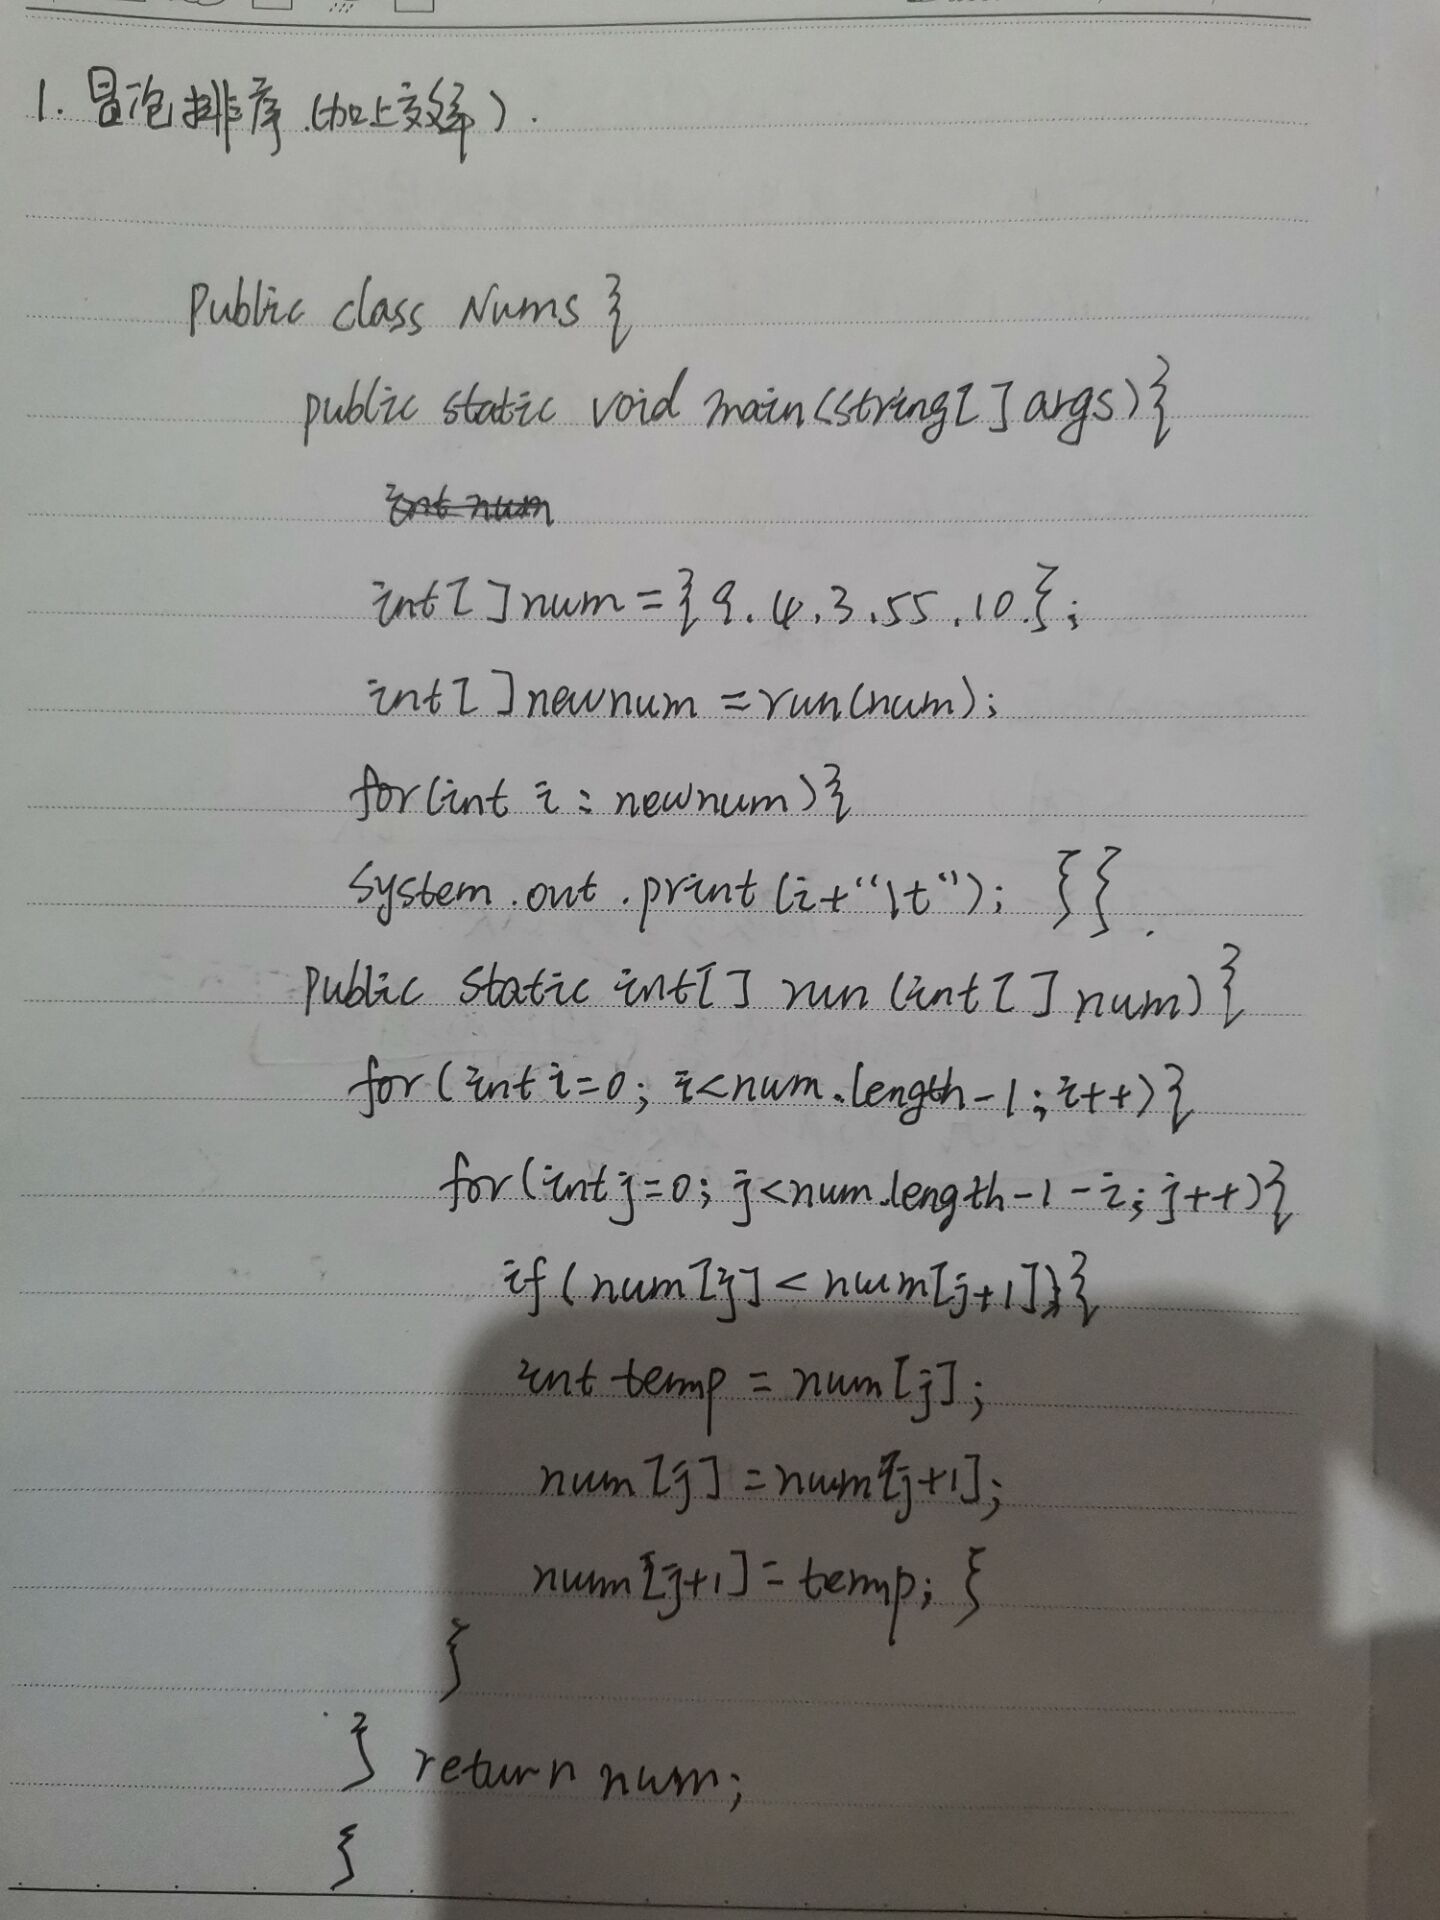 1. 冒泡排序.(加上效率).
Public class Nums {
public static void main(string[] args){
int num
int[] num = {9.4.3.55.10.};
int[] newnum = run(num);
for(int i : newnum){
System.out.print(i+"\t"); }}.
Public static int[] run(int[] num){
for(int i=0; i<num.length-1; i++){
for(int j=0; j<num.length-1-i; j++){
if(num[j] < num[j+1]){
int temp = num[j];
num[j] = num[j+1];
num[j+1] = temp; }
}
} return num;
}